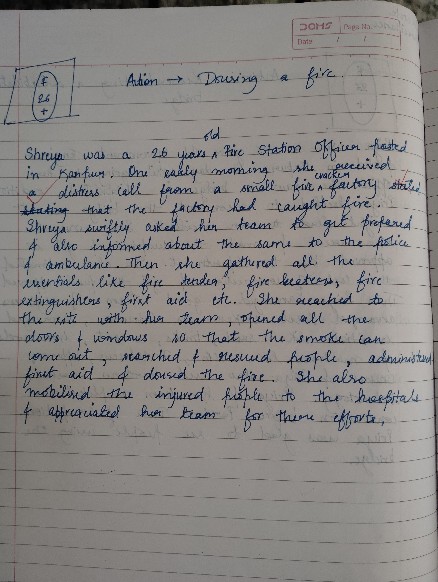 DOMS
Page No.
Date / /
F
26
+
Action → Dousing a fire.
Shreya was a 26 years old Fire Station Officer posted
in Kanpur. One early morning she received
a distress call from a small fire cracker factory stated
stating that the factory had caught fire.
Shreya swiftly asked her team to get prepared
& also informed about the same to the police
& ambulance. Then she gathered all the
essentials like fire tender, fire beaters, fire
extinguishers, first aid etc. She reached to
the site with her team, opened all the
doors & windows so that the smoke can
come out, searched & rescued people, administered
first aid & doused the fire. She also
mobilised the injured people to the hospitals
& appreciated her team for there efforts.